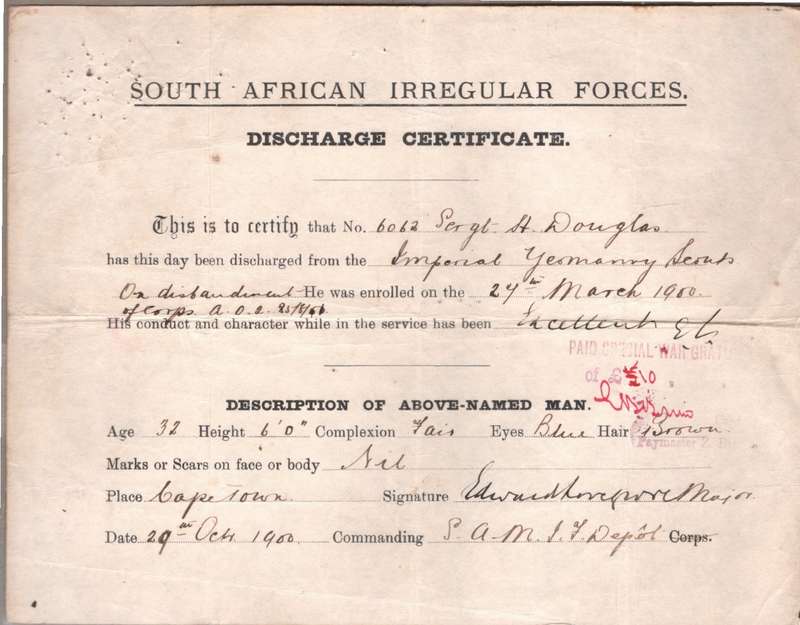 SOUTH AFRICAN IRREGULAR FORCES.
DISCHARGE CERTIFICATE.
This is to certify that No. 6062 Sergt. H. Douglas
has this day been discharged from the Imperial Yeomanry Scouts
On disbandment He was enrolled on the 27th March 1900.
of corps A. O. O.
His conduct and character while in the service has been Excellent
PAID SPECIAL WAR GRATU
of £5/10
DESCRIPTION OF ABOVE-NAMED MAN.
Age 32 Height 6'0" Complexion Fair Eyes Blue Hair Brown
Paymaster
Marks or Scars on face or body Nil
Place Cape Town. Signature Major
Date 29th Oct. 1900. Commanding S. A. M. I. F. Depôt Corps.